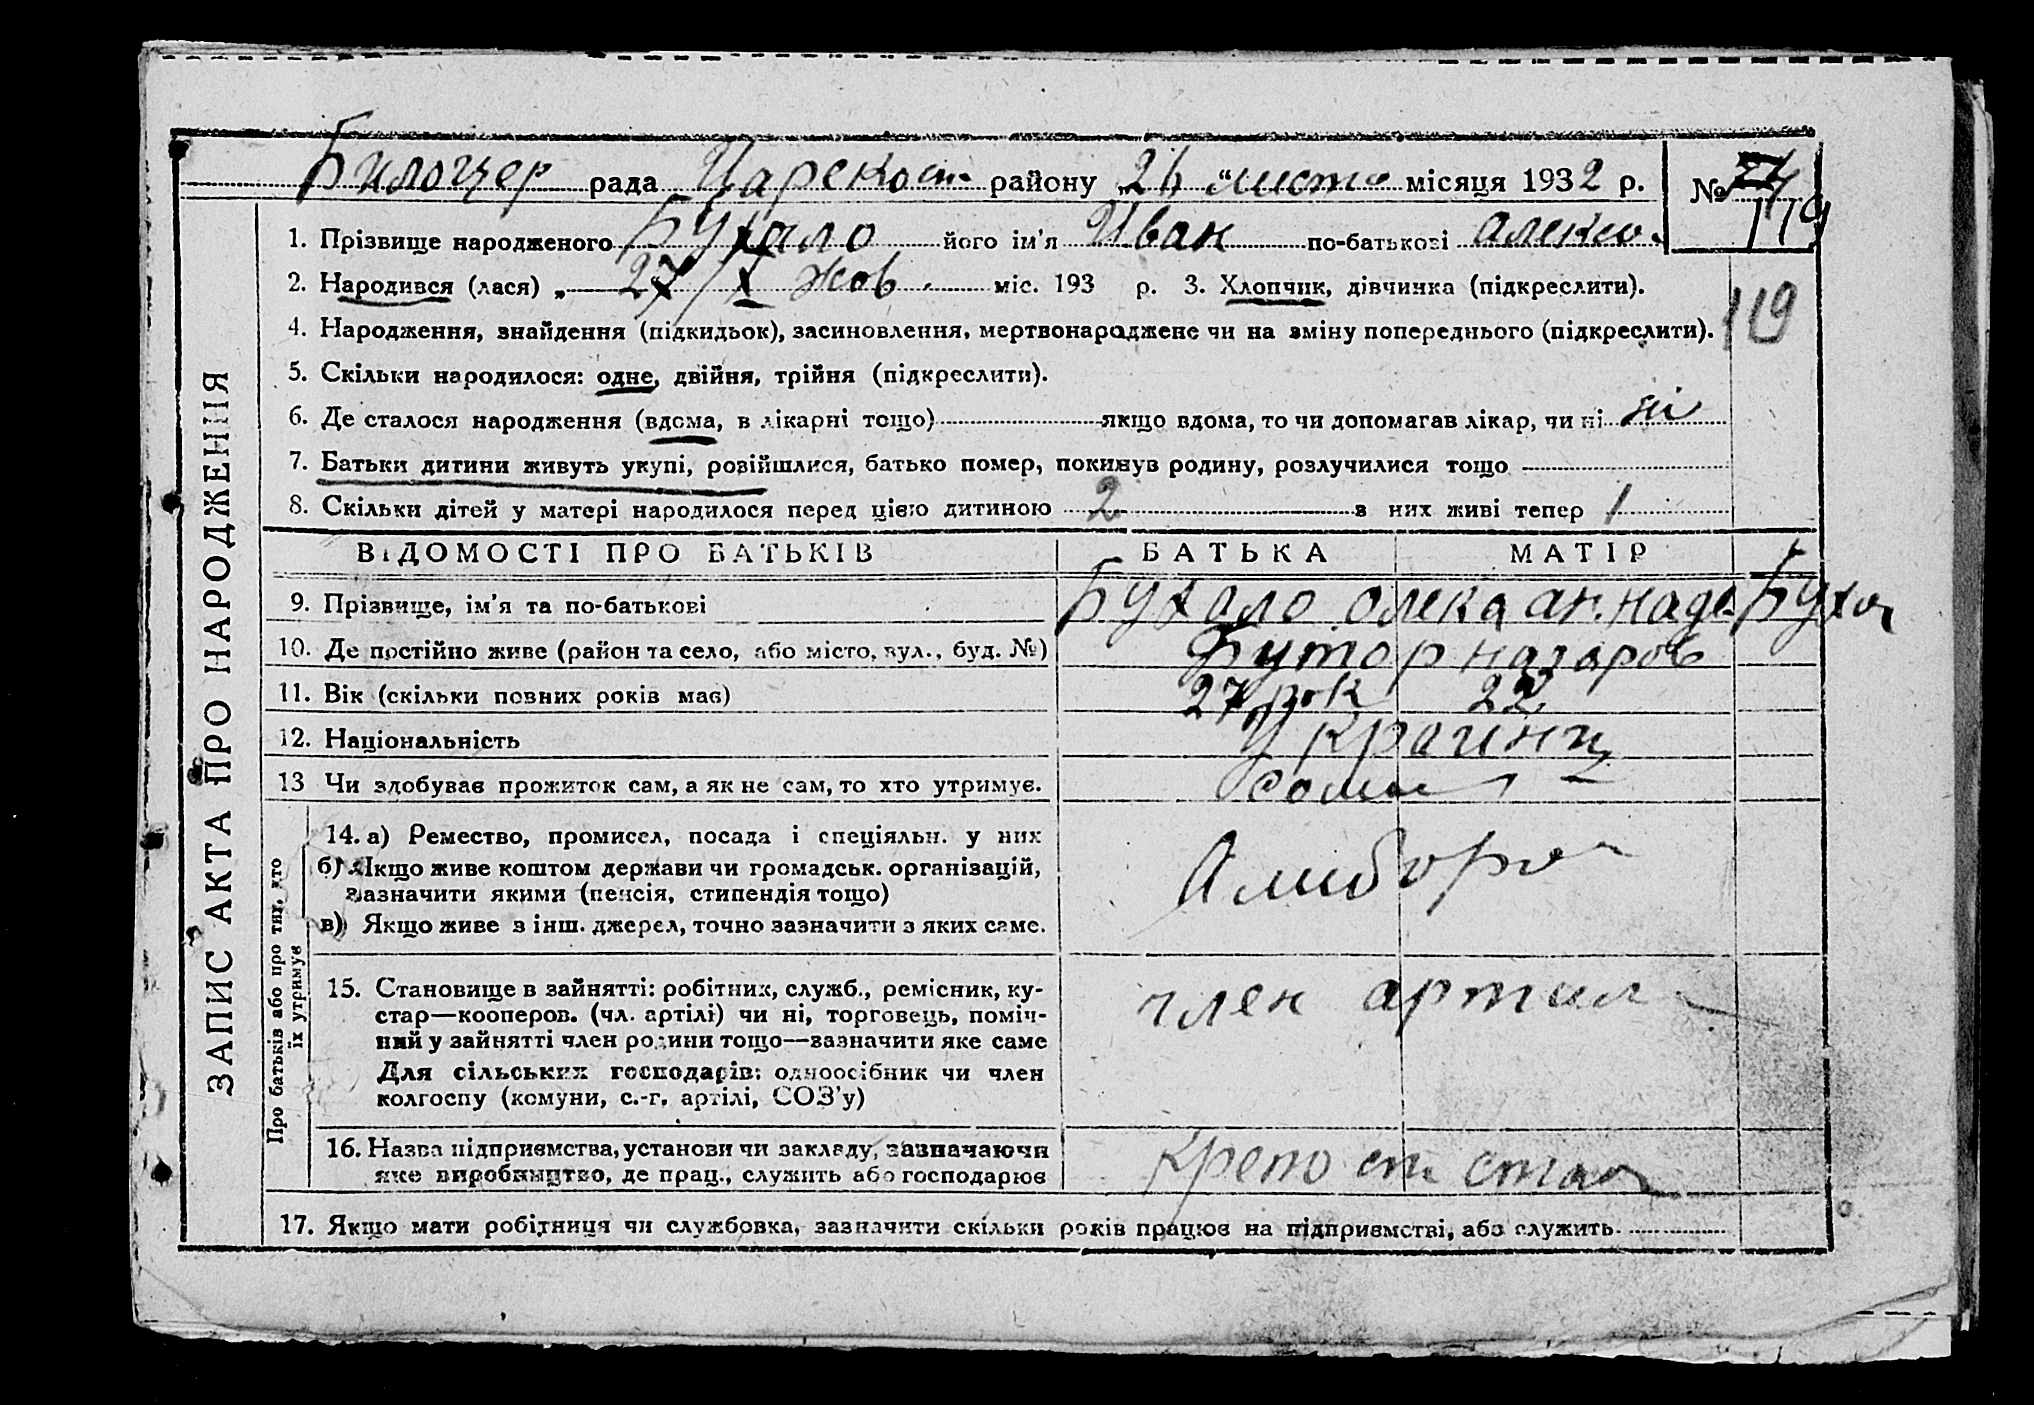 Билоцер рада Царекост району „26“ листо місяця 1932 р. № 74
119
1. Прізвище народженого Бухало його ім’я Иван по-батькові Алексо.
2. Народився (лася) „ 27/X жов. міс. 193 р. 3. Хлопчик, дівчинка (підкреслити).
119
4. Народження, знайдення (підкидьок), засиновлення, мертвонароджене чи на зміну попереднього (підкреслити).
5. Скільки народилося: одне, двійня, трійня (підкреслити).
6. Де сталося народження (вдома, в лікарні тощо) якщо вдома, то чи допомагав лікар, чи ні ні
7. Батьки дитини живуть укупі, розійшлися, батько помер, покинув родину, розлучилися тощо
8. Скільки дітей у матері народилося перед цією дитиною 2 з них живі тепер 1
ВІДОМОСТІ ПРО БАТЬКІВ БАТЬКА МАТІР
9. Прізвище, ім’я та по-батькові Бухало олекса ан. Надя Буха
10. Де постійно живе (район та село, або місто, вул., буд. №) Бутор назаров
11. Вік (скільки повних років має) 27 рок 22
12. Національність Украинц
13 Чи здобуває прожиток сам, а як не сам, то хто утримує. сами
14. а) Ремество, промисел, посада і спеціяльн. у них
б) Якщо живе коштом держави чи громадськ. організацій,
зазначити якими (пенсія, стипендія тощо)
в) Якщо живе з інш. джерел, точно зазначити з яких саме.
15. Становище в зайнятті: робітник, служб., ремісник, ку-
стар—кооперов. (чл. артілі) чи ні, торговець, поміч-
ний у зайнятті член родини тощо—зазначити яке саме
член артил
Для сільських господарів: одноосібник чи член
колгоспу (комуни, с.-г. артілі, СОЗ’у)
16. Назва підприємства, установи чи закладу, зазначаючи
яке виробництво, де прац., служить або господарює
17. Якщо мати робітниця чи службовка, зазначити скільки років працює на підприємстві, або служить
ЗАПИС АКТА ПРО НАРОДЖЕННЯ
Про батьків або про тих, хто
їх утримує